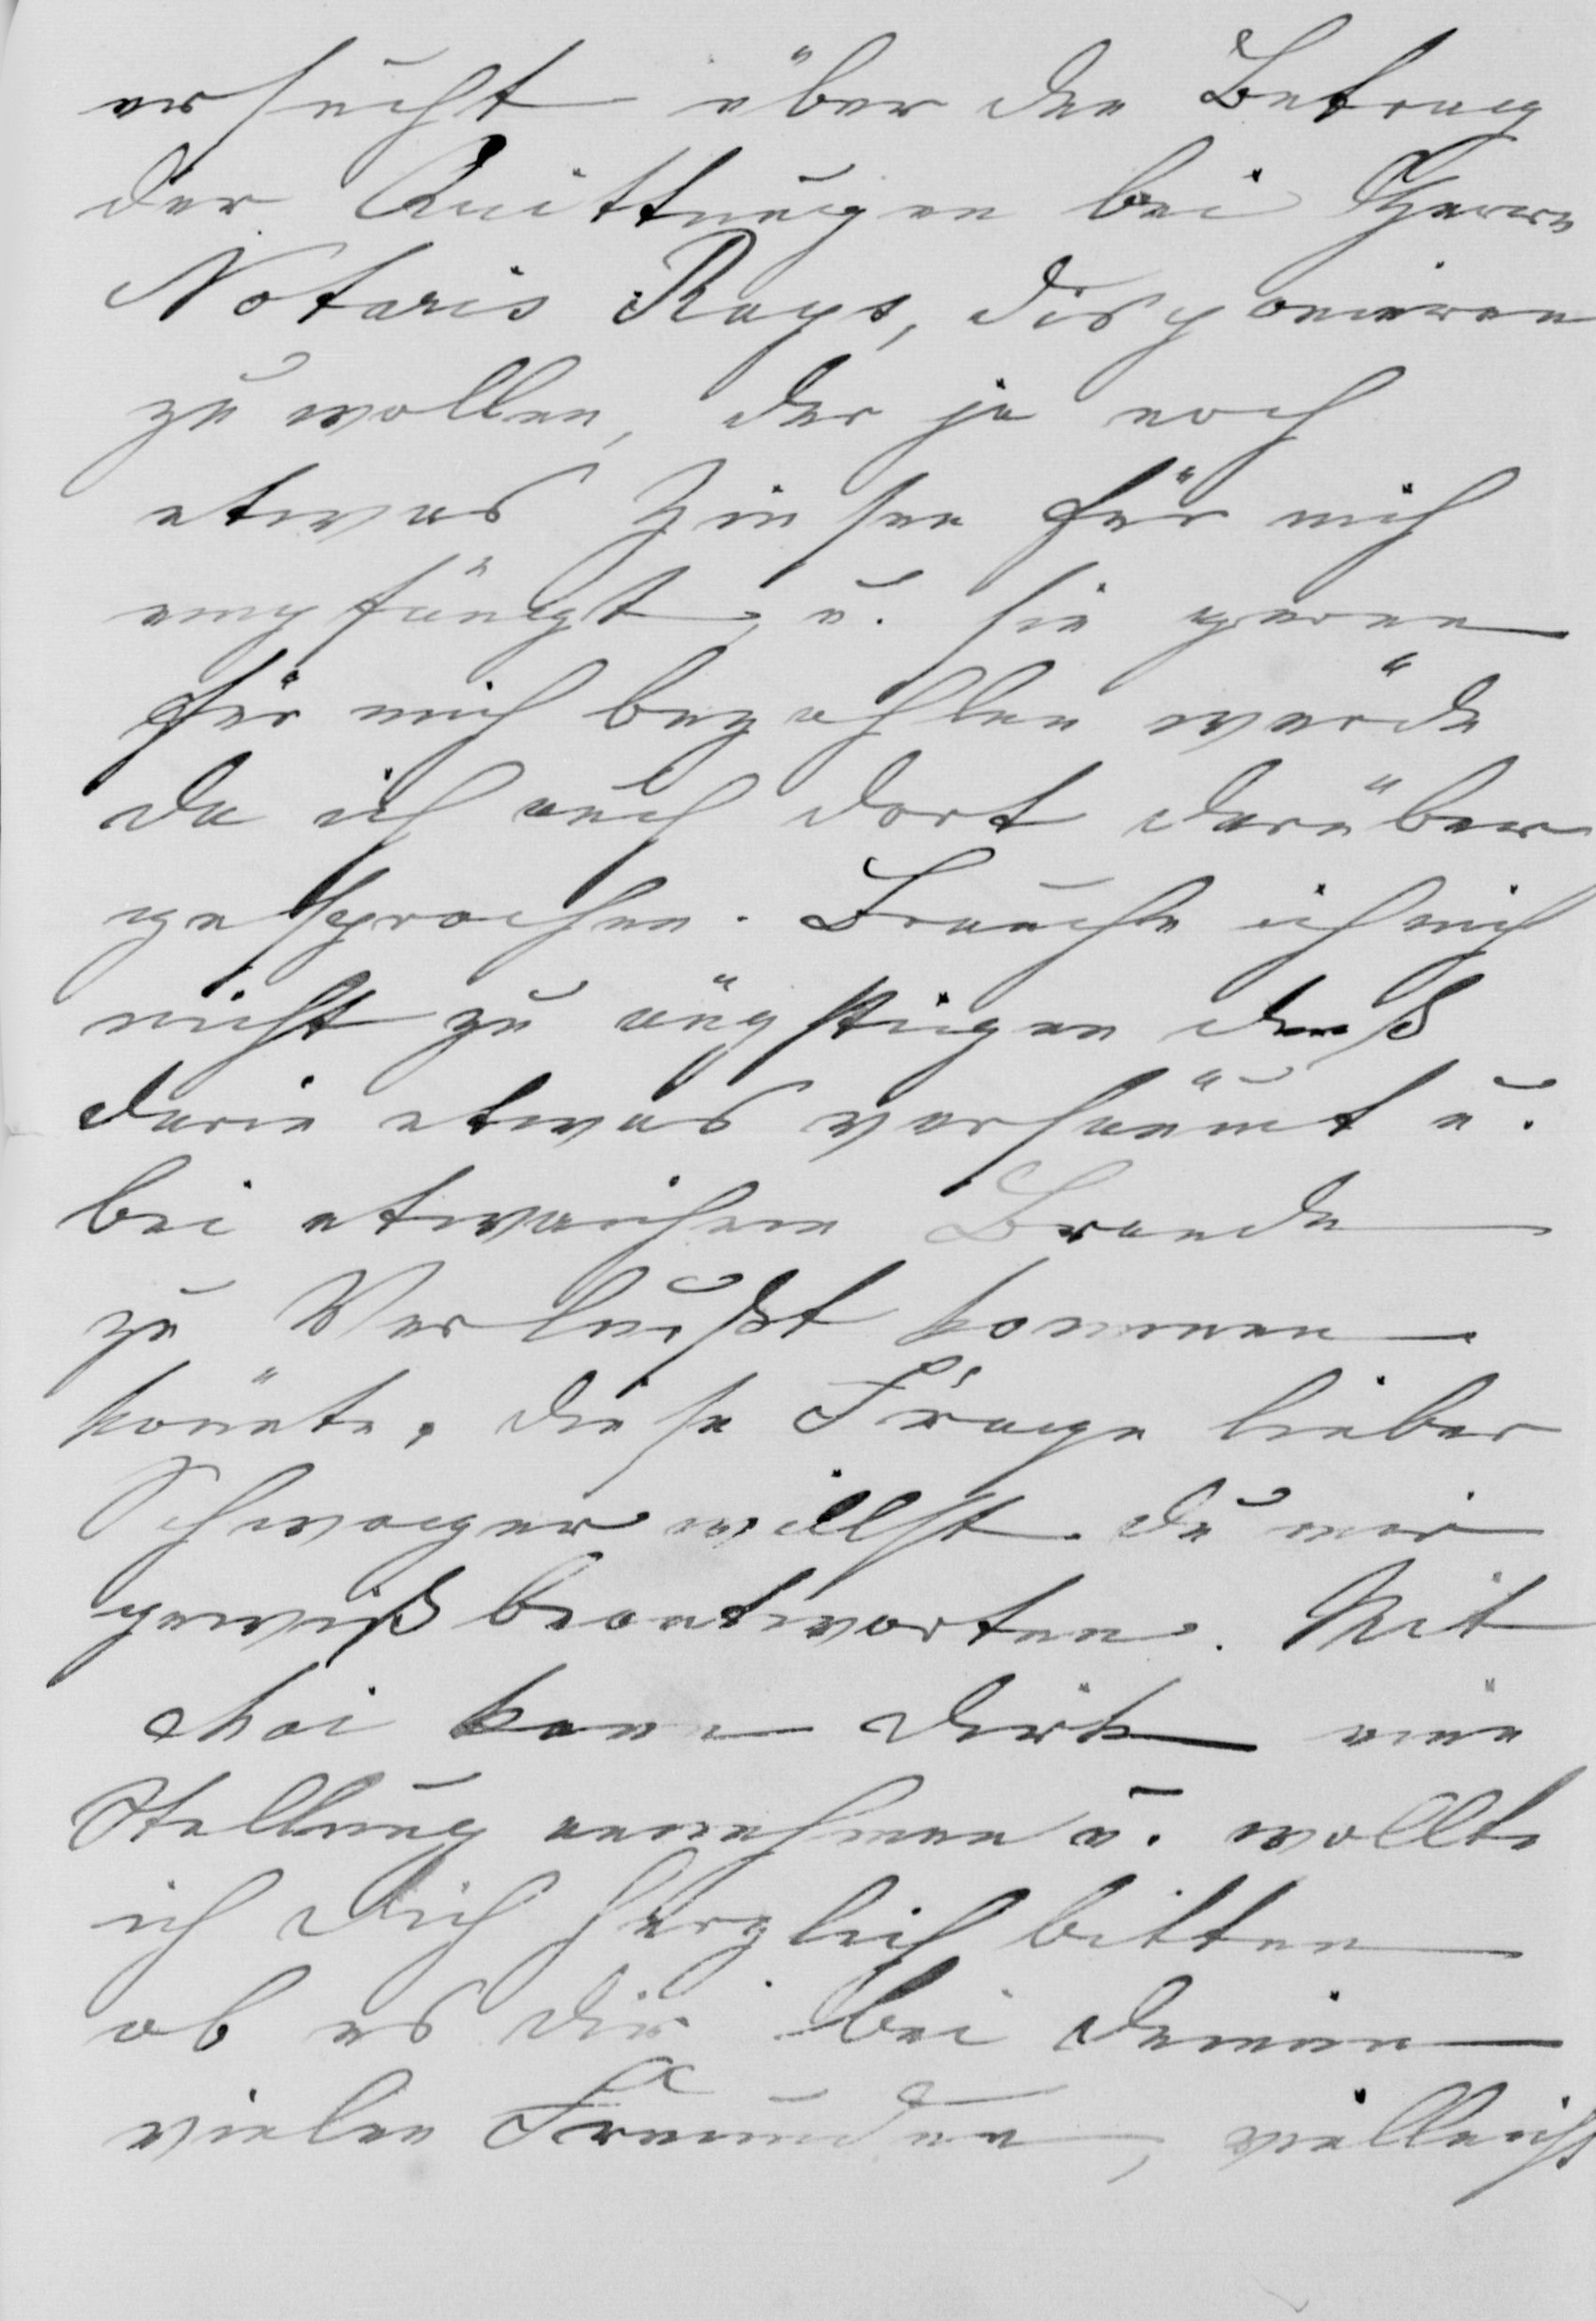 ersucht über den Betrag
der Quittungen bei Herrn
Notaris Rays, disponieren
zu wollen, der ja noch
etwas Zinsen für mich
empfängt, u. sie gerne
für mich bezahlen würde
da ich auch dort darüber
gesprochen. Brauche ich mich
nicht zu ängstigen daß
darin etwas versäumt u.
bei etwaichem Brande
zu Verlußt kommen
könnte, diese Frage lieber
Schwager willst du mir
gewiß beantworten. Mit
Mai kann Dirk eine
Stellung annehmen u. wollte
ich Dich herzlich bitten
ob es dir bei deinen
vielen Freunden, vielleicht